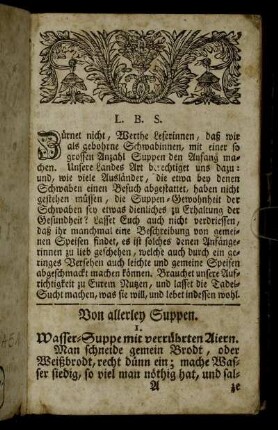 L. B. S.
Zürnet nicht, Werthe Leserinnen, daß wir
als gebohrne Schwabinnen, mit einer so
grossen Anzahl Suppen den Anfang ma-
chen. Unsere Landes Art berechtiget uns dazu:
und, wie viele Ausländer, die etwa bey denen
Schwaben einen Besuch abgestattet, haben nicht
gestehen müssen, die Suppen-Gewohnheit der
Schwaben sey etwas dienliches zu Erhaltung der
Gesundheit? Lasset Euch auch nicht verdriessen,
daß ihr manchmal eine Beschreibung von gemei-
nen Speisen findet, es ist solches denen Anfänge-
rinnen zu lieb geschehen, welche auch durch ein ge-
ringes Versehen auch leichte und gemeine Speisen
abgeschmackt machen können. Brauchet unsere Auf-
richtigkeit zu Eurem Nutzen, und lasset die Tadel-
Sucht machen, was sie will, und lebet indessen wohl.
Von allerley Suppen.
1.
Wasser-Suppe mit verrührten Aiern.
Man schneide gemein Brodt, oder
Weißbrodt, recht dünn ein; mache Was-
ser siedig, so viel man nöthig hat, und sal-
A ze